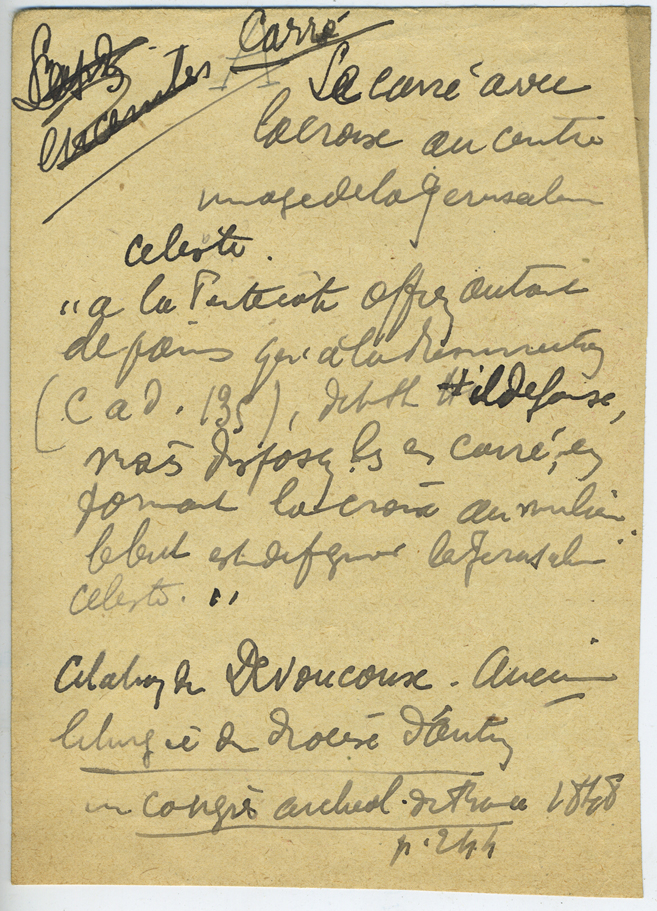 Carré
Le carré avec
la croix au centre
image de la Jerusalem
celeste.
"a la Pentecôte offrez autant
de pains qu'à la Résurrection
(C a D. 135), dit St Hildefonse,
mais disposez les en carré, en
formant la croix au milieu
le but est de figurer la Jerusalem
celeste."
Citation de Devoucoux. Ancienne
liturgie du diocèse d'Autun
in congrès archeol. de France 1848
p. 244